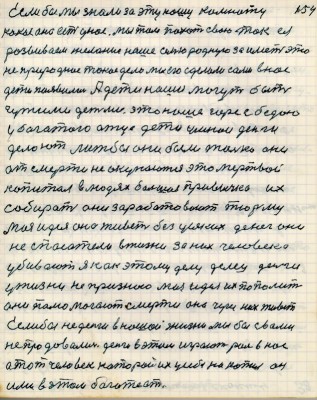 Если бы мы знали за эту нашу комнату 154
какая она есть у нас, мы так такой свою так ее
развиваем желание наше семью родную заиметь это
не природное такое дело мы его сделали сами в нас
дети появились А дети наши могут быть
чужими детьми, это наше горе с бедою
у богатого отца дети ценной деньги
делают лишь бы они были только они
от смерти не окупаются это мертвой
капитал в людях большая привычка их
собирать они заработают тюрьму
моя идея она живет без всяких денег они
не спасатели в жизни за них человека
убивают я как этому делу делец деньги
у жизни не признаю моя идея их потопит
они помогают смерти она через них живет
Если бы не деньги в нашей жизни мы бы свами
не продовали деньги в этом играют рол в нас
а тот человек которой их у себя накопил он
ими в этом богатеет.